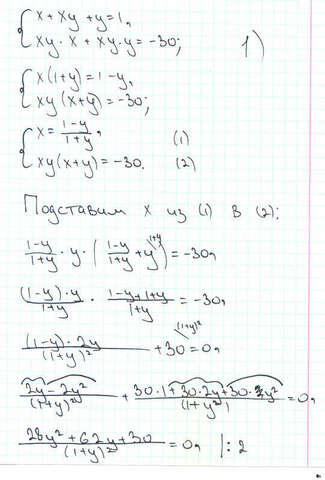 { x + xy + y = 1,
xy · x + xy · y = -30; 1)
{ x(1+y) = 1-y,
xy(x+y) = -30;
{ x = (1-y)/(1+y), (1)
xy(x+y) = -30. (2)
Подставим x из (1) в (2):
(1-y)/(1+y) · y · ( (1-y)/(1+y) + y^{\1+y} ) = -30,
((1-y)·y)/(1+y) · (1-y+1+y)/(1+y) = -30,
((1-y)·2y)/(1+y)² + 30^{\(1+y)²} = 0,
(2y - 2y²)/(1+y)² + (30·1 + 30·2y + 30·y²)/(1+y²) = 0,
(28y² + 62y + 30)/(1+y)² = 0, |:2